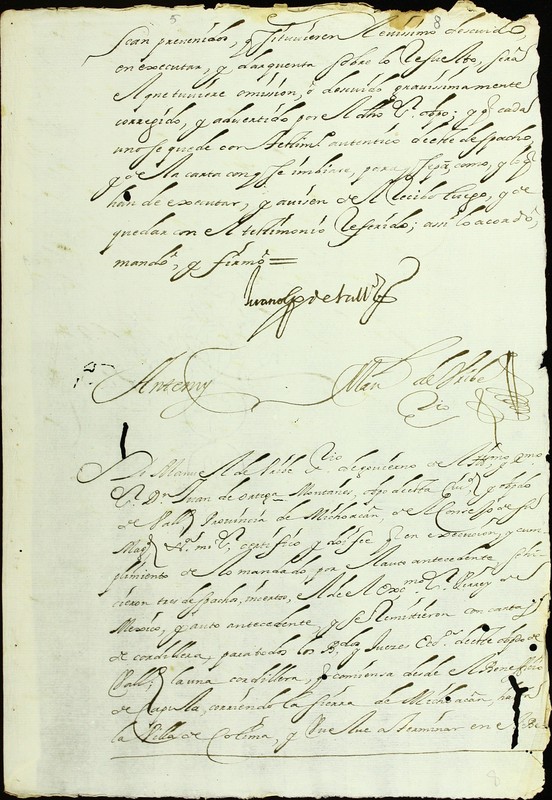 5 8
sean prevenidos, q̃ si tuvieren el mínimo descuido,
en executar, y dar quenta sobre lo resuelto, será
el que tuviere omisión, o descuido gravisimamente
corregido, y advertido por el dho S.r obpo; y q̃ cada
uno se quede con testim.o autentico deeste despacho,
y de la carta con q̃ se imbiare, para q̃ sepa, como, y lo q̃
han de executar, y avisen del recivo luego, y de
quedar con el testimonio referido; assi lo acordó,
mandó, y firmó =
Juan obpo de Vall.d
Antemy Man.l de Uribe
S.rio
D.r Manuel de Uribe S.rio de govierno de el Ill.mo
S.r D.n Juan de ortega Montañes, obpo de esta Ciu.d y obpdo
de Vall.d Provincia de Michoacan, de el Consejo de su
Mag.d &.a mi S.r, certifico y doi fee q̃ en execucion, y cum
plimiento de lo mandado por el auto antecedente, se hi
cieron tres despachos, insertos, el de el Ex.mo S.r Virrey de
Mexico, y auto antecedente, y se remitieron con cartas
de cordillera, para todos los B.dos y Juezes Ecc.os deeste obpdo de
Vall.d; la una cordillera, q̃ comiensa desde el Beneficio
de Capula, corriendo la sierra de Michoacan, hasta
la Villa de Colima, y buelve a terminar en el
8